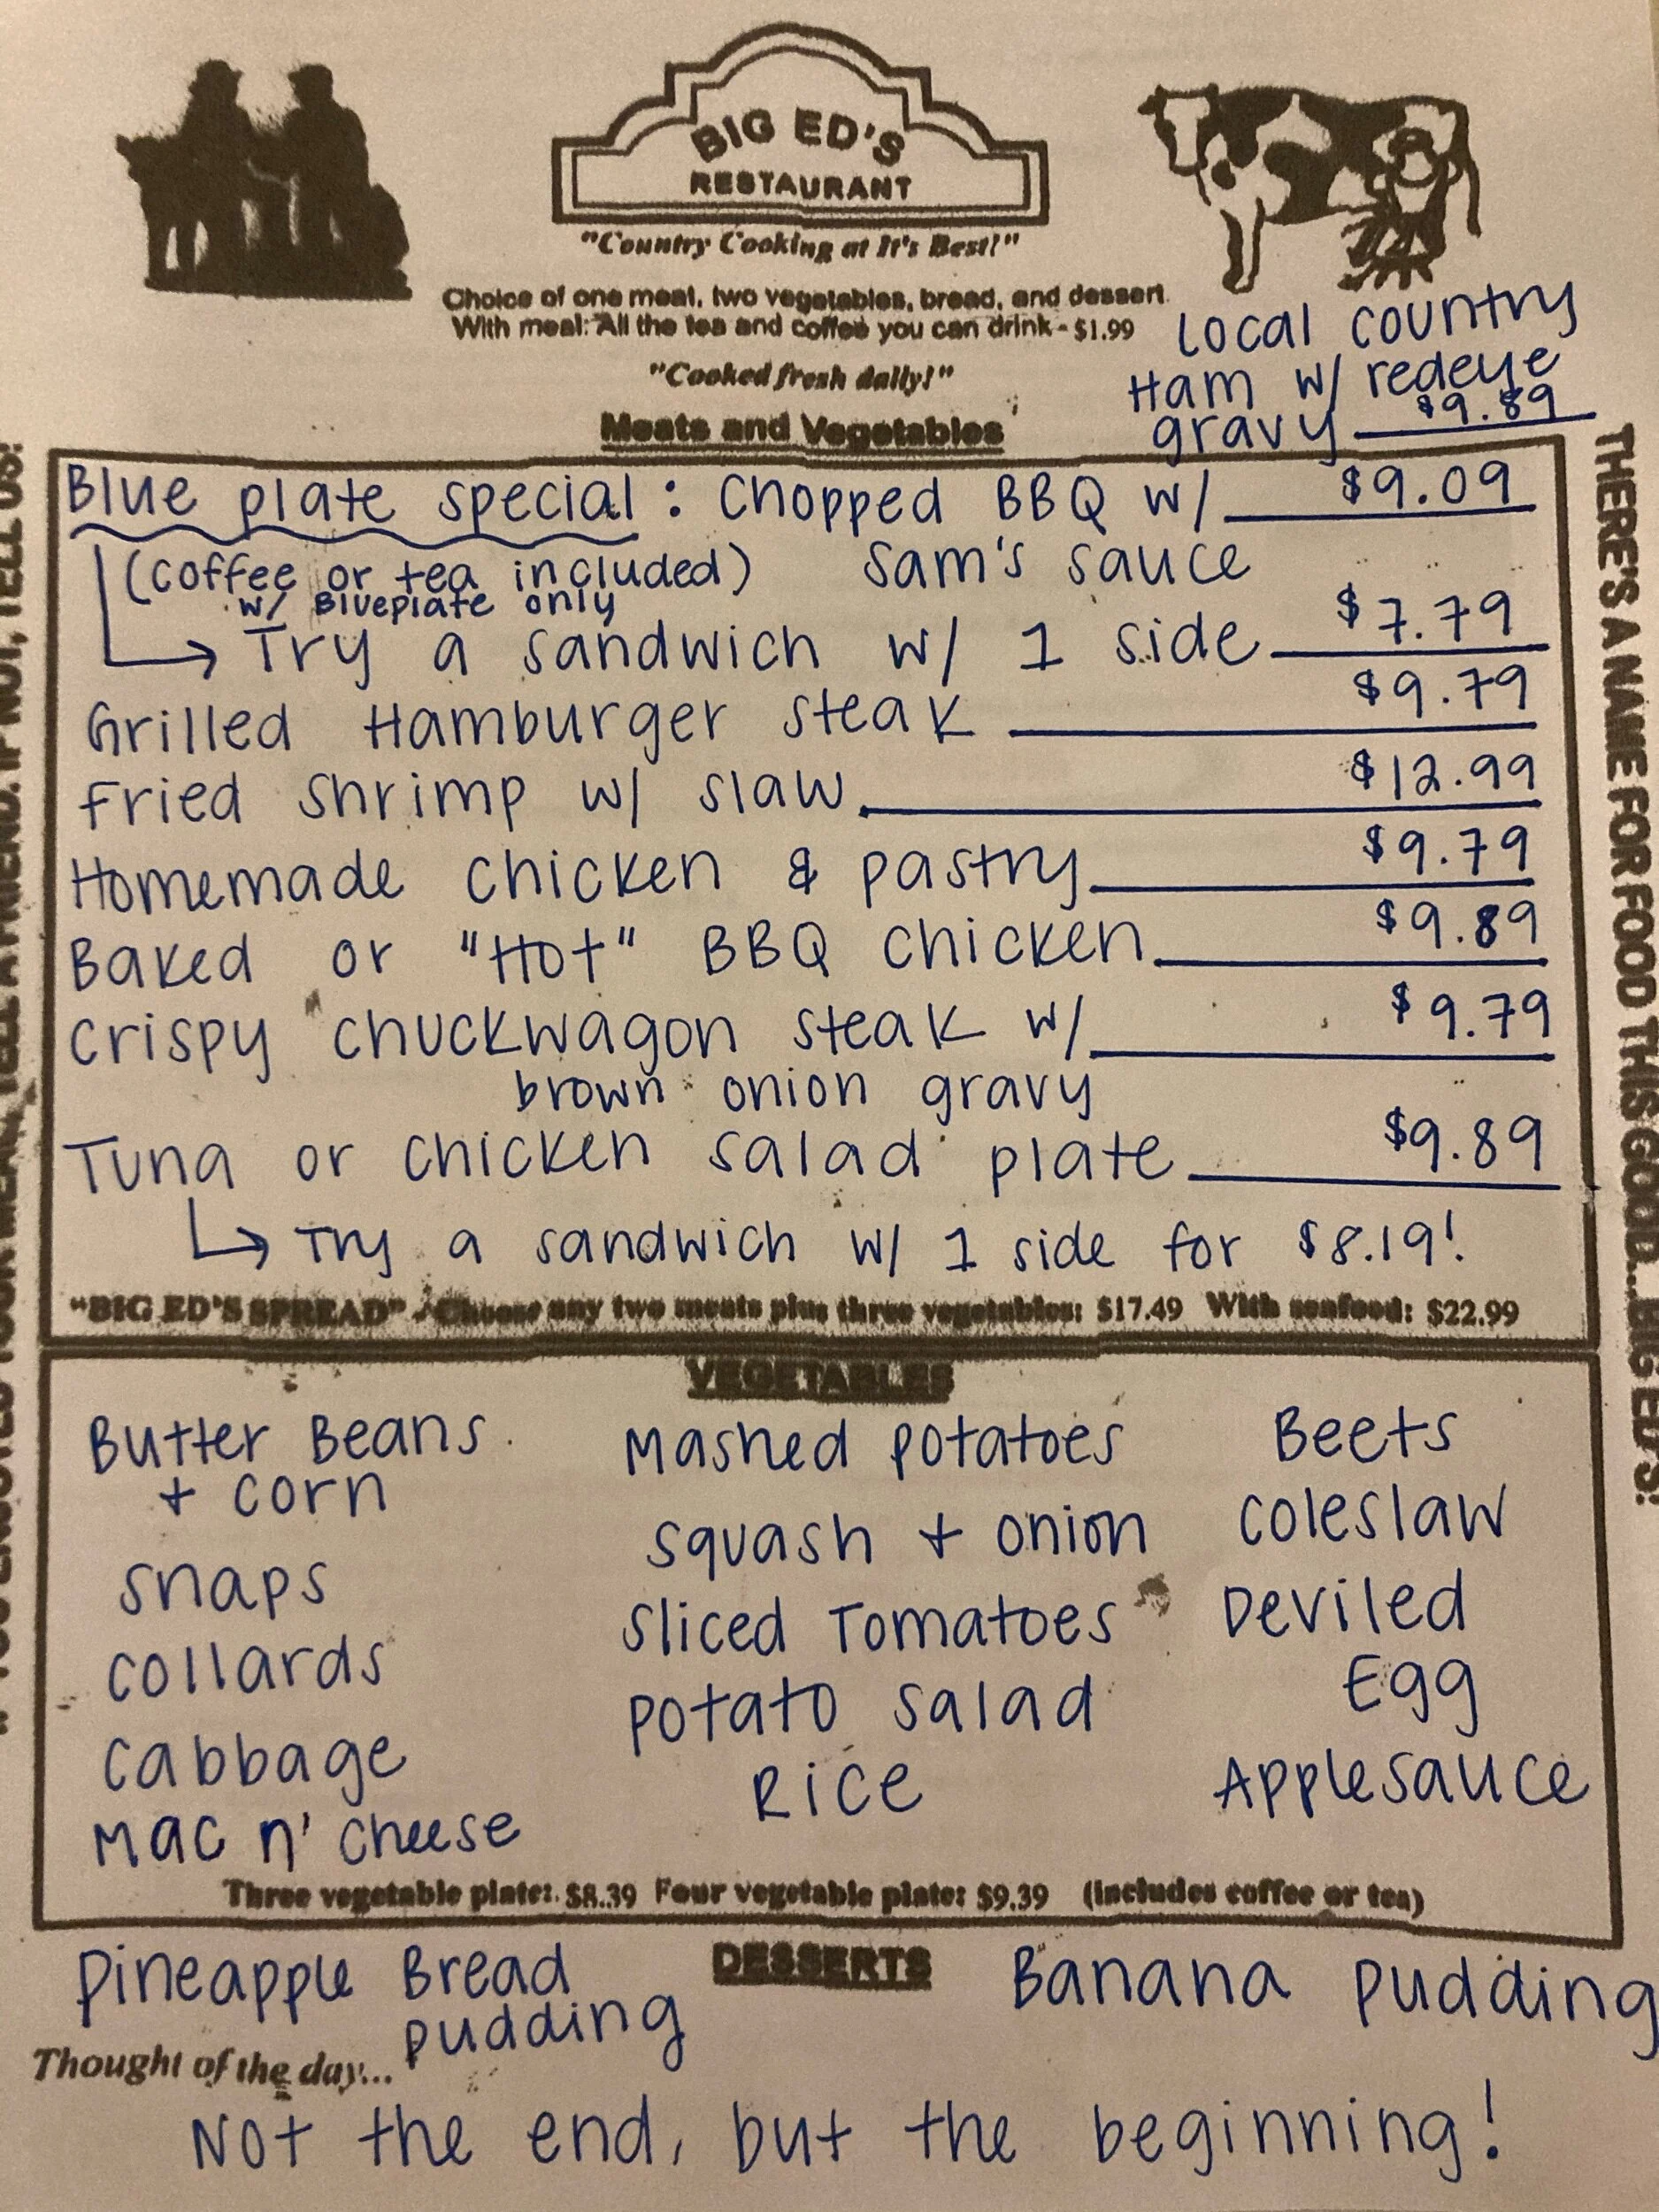 BIG ED'S
RESTAURANT
"Country Cooking at It's Best!"
Choice of one meat, two vegetables, bread, and dessert.
With meal: All the tea and coffee you can drink - $1.99
"Cooked fresh daily!"
Local country
Ham w/ redeye
gravy $9.89
Meats and Vegetables
Blue plate special: Chopped BBQ w/ $9.09
(coffee or tea included) Sam's sauce
w/ Blueplate only
→ Try a sandwich w/ 1 side $7.79
Grilled Hamburger steak $9.79
Fried shrimp w/ slaw $12.99
Homemade chicken & pastry $9.79
Baked or "Hot" BBQ chicken $9.89
Crispy chuckwagon steak w/ $9.79
brown onion gravy
Tuna or chicken salad plate $9.89
→ Try a sandwich w/ 1 side for $8.19!
"BIG ED'S SPREAD" - Choose any two meats plus three vegetables: $17.49 With seafood: $22.99
VEGETABLES
Butter Beans
+ corn
Snaps
Collards
Cabbage
Mac n' cheese
Mashed potatoes
Squash + onion
Sliced Tomatoes
Potato salad
Rice
Beets
Coleslaw
Deviled
Egg
Applesauce
Three vegetable plate: $8.39 Four vegetable plate: $9.39 (includes coffee or tea)
DESSERTS
Pineapple Bread
pudding
Banana pudding
Thought of the day...
Not the end, but the beginning!
THERE'S A NAME FOR FOOD THIS GOOD...BIG ED'S!
MEAL, TELL A FRIEND. IF NOT, TELL US!